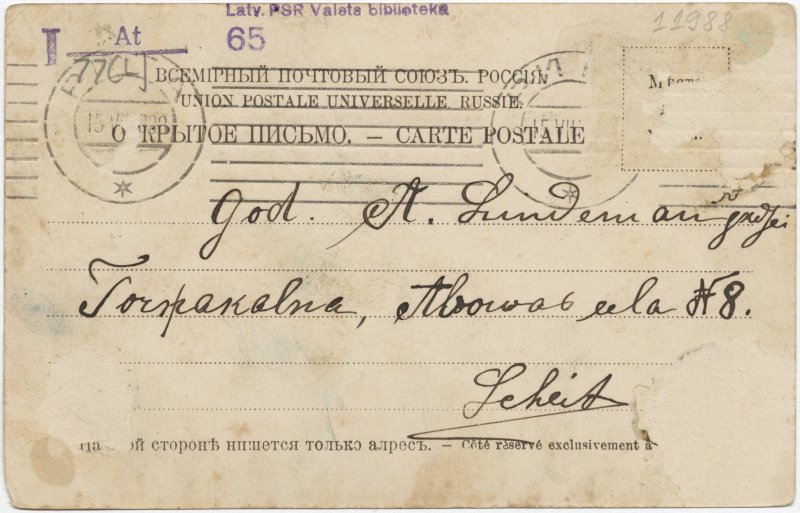 Latv. PSR Valsts bibliotēka
11988
At
65
ВСЕМІРНЫЙ ПОЧТОВЫЙ СОЮЗЪ. РОССІЯ.
UNION POSTALE UNIVERSELLE. RUSSIE.
О КРЫТОЕ ПИСЬМО. — CARTE POSTALE
God. A. Lundeman
Tornakalna, ela № 8.
Scheit
На ой сторонѣ пишется только адресъ. — Côté réservé exclusivement à